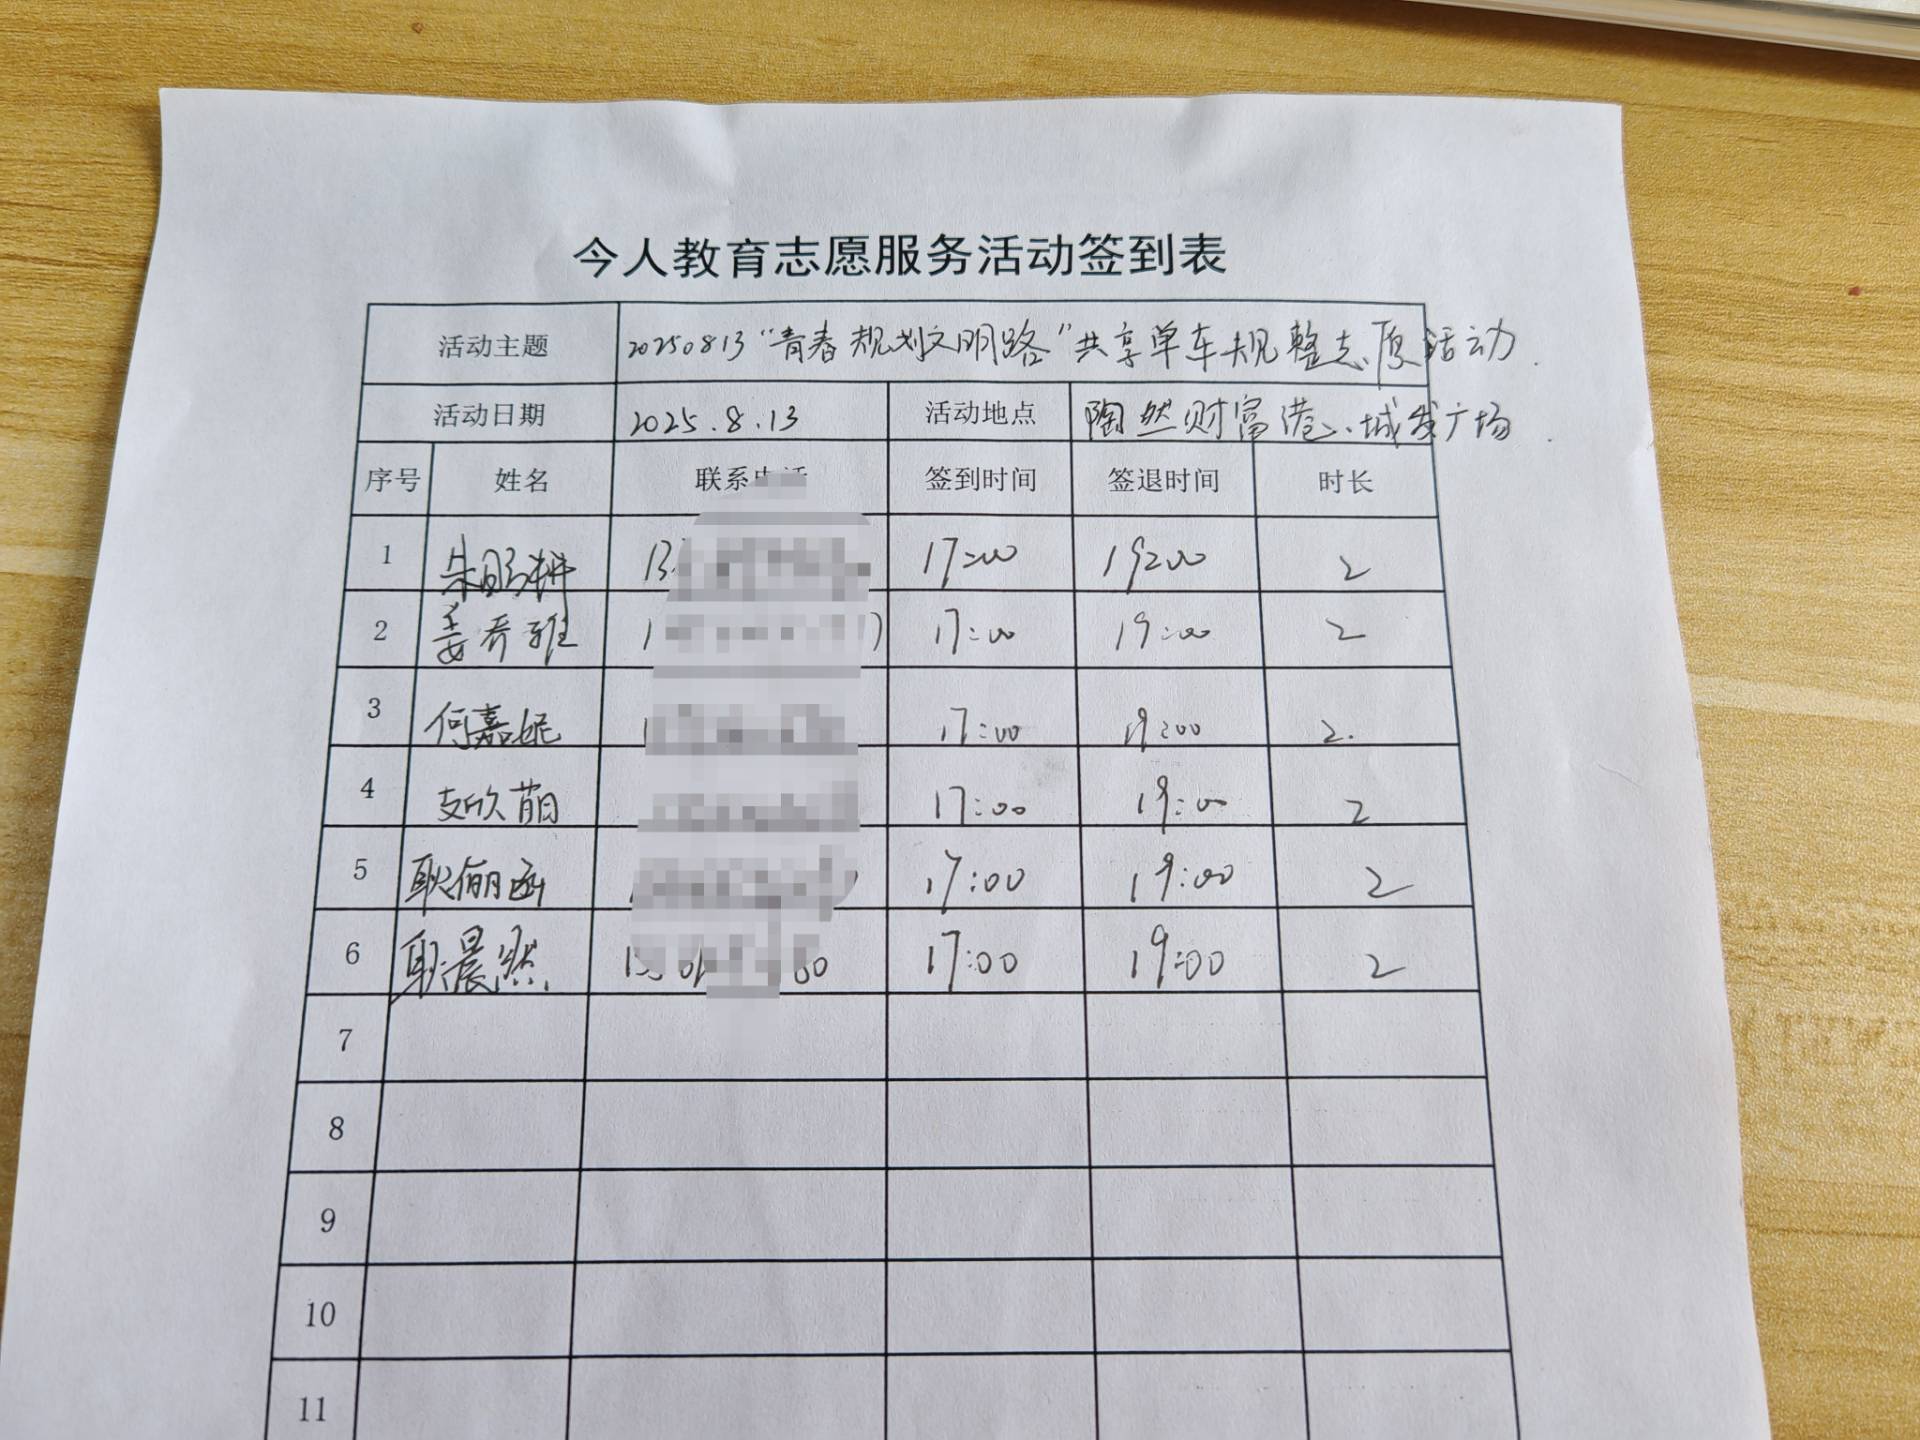 今人教育志愿服务活动签到表
活动主题 20250813“青春规划文明路”共享单车规整志愿活动.
活动日期 2025.8.13 活动地点 陶然财富港、城发广场.
序号 姓名 联系电话 签到时间 签退时间 时长
1 朱鹏耕 17:00 19:00 2
2 姜乔雅 17:00 19:00 2
3 何嘉妮 17:00 19:00 2.
4 支欣萌 17:00 19:00 2
5 耿俪函 17:00 19:00 2
6 耿晨然 17:00 19:00 2
7
8
9
10
11